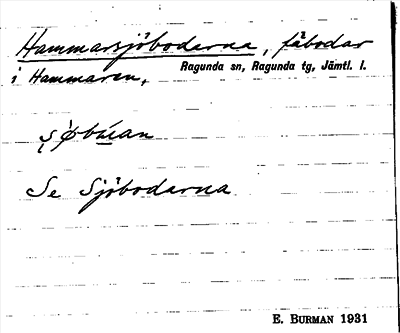 Hammarsjöbodarna, fäbodar
i Hammaren, Ragunda sn, Ragunda tg, Jämtl. l.
Se Sjöbodarna
E. BURMAN 1931